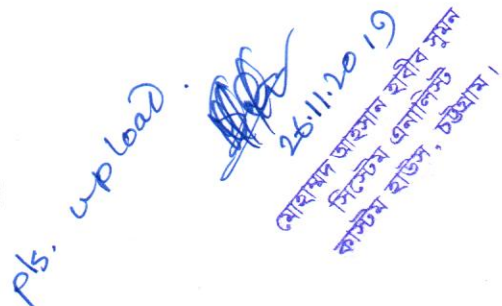 pls. upload.
26.11.2019
মোহাম্মদ আহসান হাবীব সুমন
সিস্টেম এনালিস্ট
কাস্টম হাউস, চট্টগ্রাম।